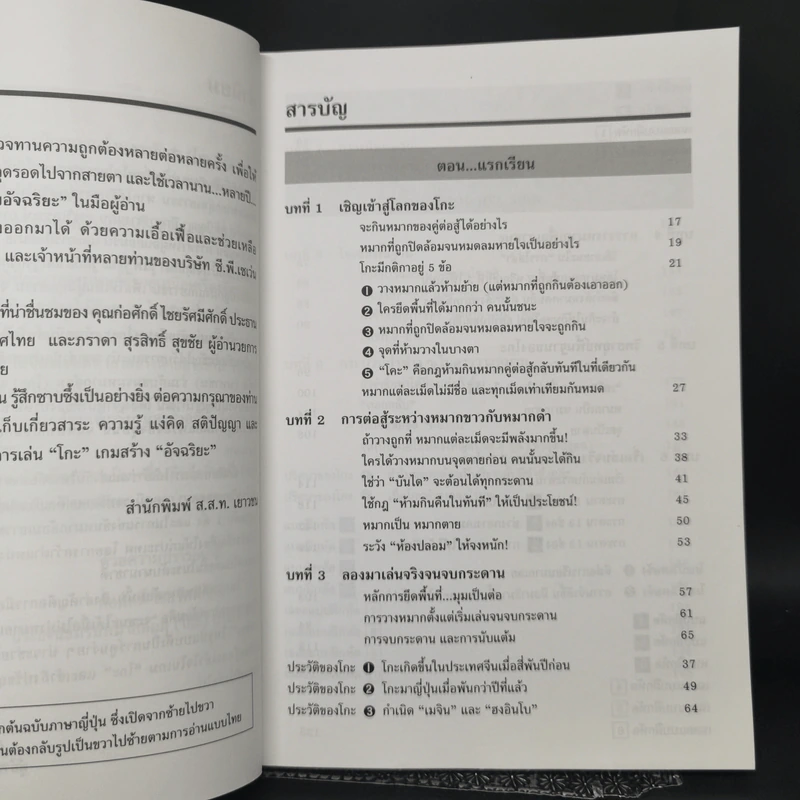 วจทานความถูกต้องหลายต่อหลายครั้ง เพื่อให้
ดรอดไปจากสายตา และใช้เวลานาน...หลายปี...
อัจฉริยะ” ในมือผู้อ่าน
งออกมาได้ ด้วยความเอื้อเฟื้อและช่วยเหลือ
และเจ้าหน้าที่หลายท่านของบริษัท ซี.พี.เซเว่น
ที่น่าชื่นชมของ คุณก่อศักดิ์ ไชยรัศมีศักดิ์ ประธาน
ศไทย และภราดา สุรสิทธิ์ สุขชัย ผู้อำนวยการ
ย
น รู้สึกซาบซึ้งเป็นอย่างยิ่ง ต่อความกรุณาของท่าน
ก็บเกี่ยวสาระ ความรู้ แง่คิด สติปัญญา และ
การเล่น “โกะ” เกมสร้าง “อัจฉริยะ”
สำนักพิมพ์ ส.ส.ท. เยาวชน
กต้นฉบับภาษาญี่ปุ่น ซึ่งเปิดจากซ้ายไปขวา
นต้องกลับรูปเป็นขวาไปซ้ายตามการอ่านแบบไทย
สารบัญ
ตอน...แรกเรียน
บทที่ 1 เชิญเข้าสู่โลกของโกะ
จะกินหมากของคู่ต่อสู้ได้อย่างไร 17
หมากที่ถูกปิดล้อมจนหมดลมหายใจเป็นอย่างไร 19
โกะมีกติกาอยู่ 5 ข้อ 21
❶ วางหมากแล้วห้ามย้าย (แต่หมากที่ถูกกินต้องเอาออก)
❷ ใครยึดพื้นที่ได้มากกว่า คนนั้นชนะ
❸ หมากที่ถูกปิดล้อมจนหมดลมหายใจจะถูกกิน
❹ จุดที่ห้ามวางในบางตา
❺ “โคะ” คือกฎห้ามกินหมากคู่ต่อสู้กลับทันทีในที่เดียวกัน
หมากแต่ละเม็ดไม่มีชื่อ และทุกเม็ดเท่าเทียมกันหมด 27
บทที่ 2 การต่อสู้ระหว่างหมากขาวกับหมากดำ
ถ้าวางถูกที่ หมากแต่ละเม็ดจะมีพลังมากขึ้น! 33
ใครได้วางหมากบนจุดตายก่อน คนนั้นจะได้กิน 38
ใช่ว่า “บันได” จะต้อนได้ทุกกระดาน 41
ใช้กฎ “ห้ามกินคืนในทันที” ให้เป็นประโยชน์! 45
หมากเป็น หมากตาย 50
ระวัง “ห้องปลอม” ให้จงหนัก! 53
บทที่ 3 ลองมาเล่นจริงจนจบกระดาน
หลักการยึดพื้นที่...มุมเป็นต่อ 57
การวางหมากตั้งแต่เริ่มเล่นจนจบกระดาน 61
การจบกระดาน และการนับแต้ม 65
ประวัติของโกะ ❶ โกะเกิดขึ้นในประเทศจีนเมื่อสี่พันปีก่อน 37
ประวัติของโกะ ❷ โกะมาญี่ปุ่นเมื่อพันกว่าปีที่แล้ว 49
ประวัติของโกะ ❸ กำเนิด “เมจิน” และ “ฮงอินโบ” 64